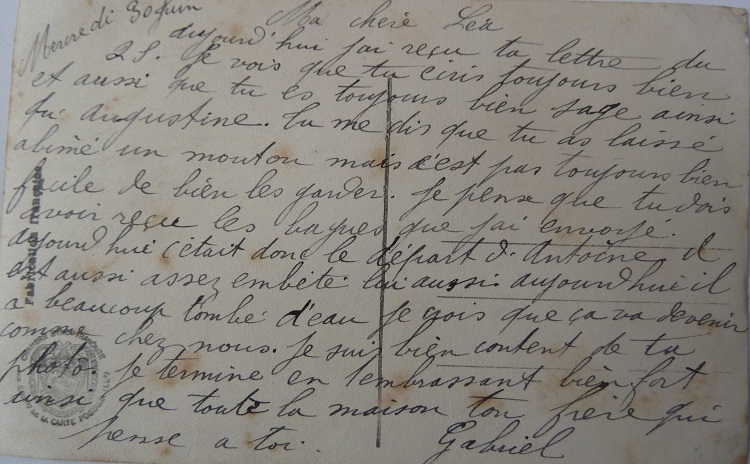 Mercredi 30 Juin
Ma chère Léa
aujourd'hui j'ai reçu ta lettre du
25. Je vois que tu ecris toujours bien
et aussi que tu es toujours bien sage ainsi
qu'augustine. Tu me dis que tu as laissé
abîmé un mouton mais c'est pas toujours bien
facile de bien les garder. Je pense que tu dois
avoir reçu les bagues que j'ai envoyé.
aujourd'hui c'était donc le départ d'Antoine il
est aussi assez embêté lui aussi. aujourd'hui il
a beaucoup tombé d'eau je crois que ça va devenir
comme chez nous. Je suis bien content de ta
photo. Je termine en t'embrassant bien fort
ainsi que toute la maison ton frère qui
pense a toi.
Gabriel
Fabrication française
DE LA CARTE POSTALE